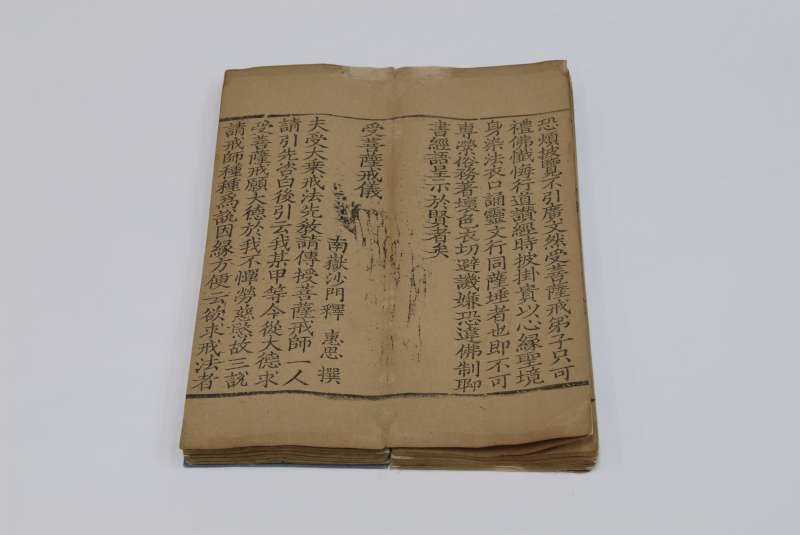 恐煩披覽不引廣文然受菩薩戒弟子只可
禮佛懺悔行道讃經時披掛實以心緣聖境
身染法衣口誦靈文行同薩埵者也即不可
專榮俗務著壞色衣切避譏嫌恐違佛制聊
書經語呈示於賢者矣
受菩薩戒儀
南嶽沙門釋 惠思 撰
夫受大乘戒法先教請傳授菩薩戒師一人
請引先咨白後引云我某甲等今從大德求
受菩薩戒願大德於我不憚勞慈愍故三説
請戒師種種爲説因緣方便云欲求戒法者